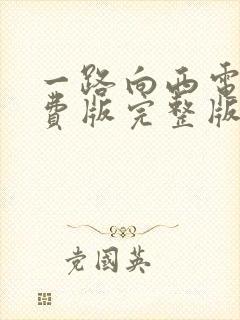 一路向西电
费版完整版
党国英